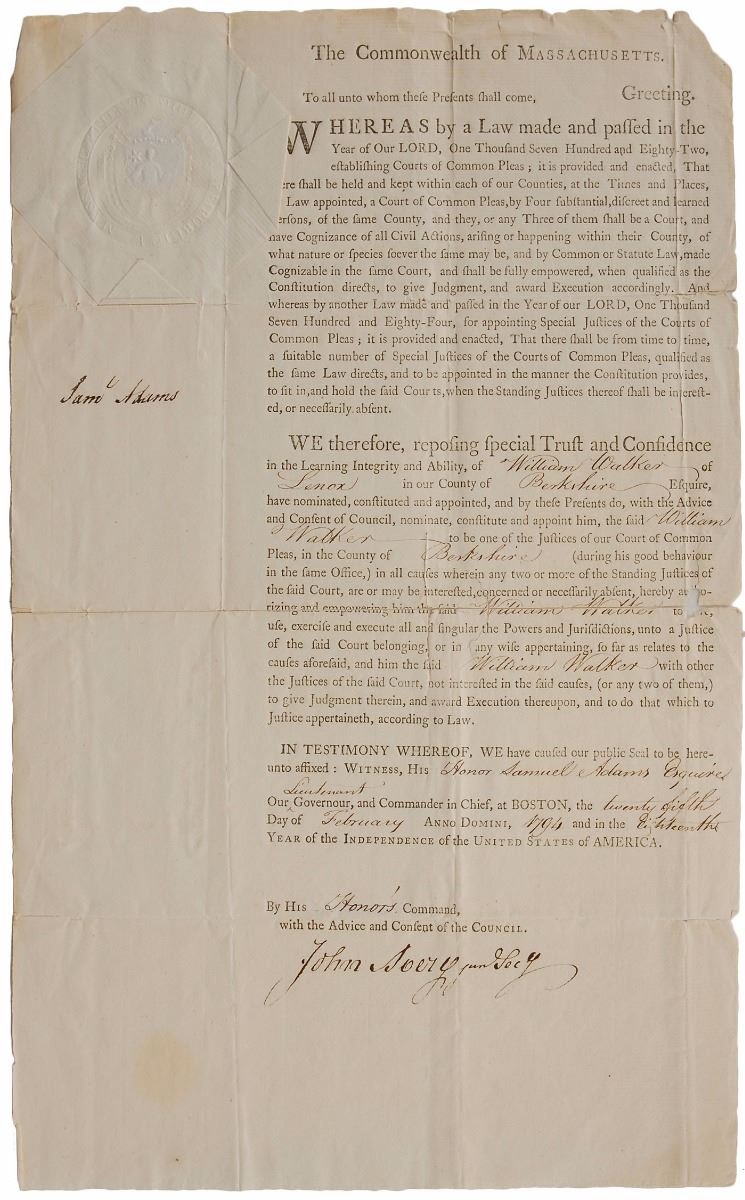 The Commonwealth of MASSACHUSETTS.
To all unto whom theſe Preſents ſhall come, Greeting.
WHEREAS by a Law made and paſſed in the
Year of Our LORD, One Thouſand Seven Hundred and Eighty-Two,
eſtabliſhing Courts of Common Pleas; it is provided and enacted, That
ere ſhall be held and kept within each of our Counties, at the Times and Places,
Law appointed, a Court of Common Pleas, by Four ſubſtantial, diſcreet and learned
erſons, of the ſame County, and they, or any Three of them ſhall be a Court, and
have Cognizance of all Civil Actions, ariſing or happening within their County, of
what nature or ſpecies ſoever the ſame may be, and by Common or Statute Law, made
Cognizable in the ſame Court, and ſhall be fully empowered, when qualified as the
Conſtitution directs, to give Judgment, and award Execution accordingly. And
whereas by another Law made and paſſed in the Year of our LORD, One Thouſand
Seven Hundred and Eighty-Four, for appointing Special Juſtices of the Courts of
Common Pleas; it is provided and enacted, That there ſhall be from time to time,
a ſuitable number of Special Juſtices of the Courts of Common Pleas, qualified as
the ſame Law directs, and to be appointed in the manner the Conſtitution provides,
to ſit in, and hold the ſaid Courts, when the Standing Juſtices thereof ſhall be intereſt-
ed, or neceſſarily abſent.
Saml Adams
WE therefore, repoſing ſpecial Truſt and Confidence
in the Learning Integrity and Ability, of William Walker of
Lenox in our County of Berkshire Eſquire,
have nominated, conſtituted and appointed, and by theſe Preſents do, with the Advice
and Conſent of Council, nominate, conſtitute and appoint him, the ſaid William
Walker to be one of the Juſtices of our Court of Common
Pleas, in the County of Berkshire (during his good behaviour
in the ſame Office,) in all cauſes wherein any two or more of the Standing Juſtices of
the ſaid Court, are or may be intereſted, concerned or neceſſarily abſent, hereby au ho-
rizing and empowering him the ſaid William Walker to
uſe, exerciſe and execute all and ſingular the Powers and Juriſdictions, unto a Juſtice
of the ſaid Court belonging, or in any wiſe appertaining, ſo far as relates to the
cauſes aforeſaid, and him the ſaid William Walker with other
the Juſtices of the ſaid Court, not intereſted in the ſaid cauſes, (or any two of them,)
to give Judgment therein, and award Execution thereupon, and to do that which to
Juſtice appertaineth, according to Law.
IN TESTIMONY WHEREOF, WE have cauſed our public Seal to be here-
unto affixed: WITNESS, HIS Honor Samuel Adams Esquire
Lieutenant
Our ‸ Governour, and Commander in Chief, at BOSTON, the twenty fifth
Day of February ANNO DOMINI, 1794 and in the Eighteenth
YEAR of the INDEPENDENCE of the UNITED STATES of AMERICA.
By HIS Honor's Command,
with the Advice and Conſent of the COUNCIL.
John Avery junr Secy